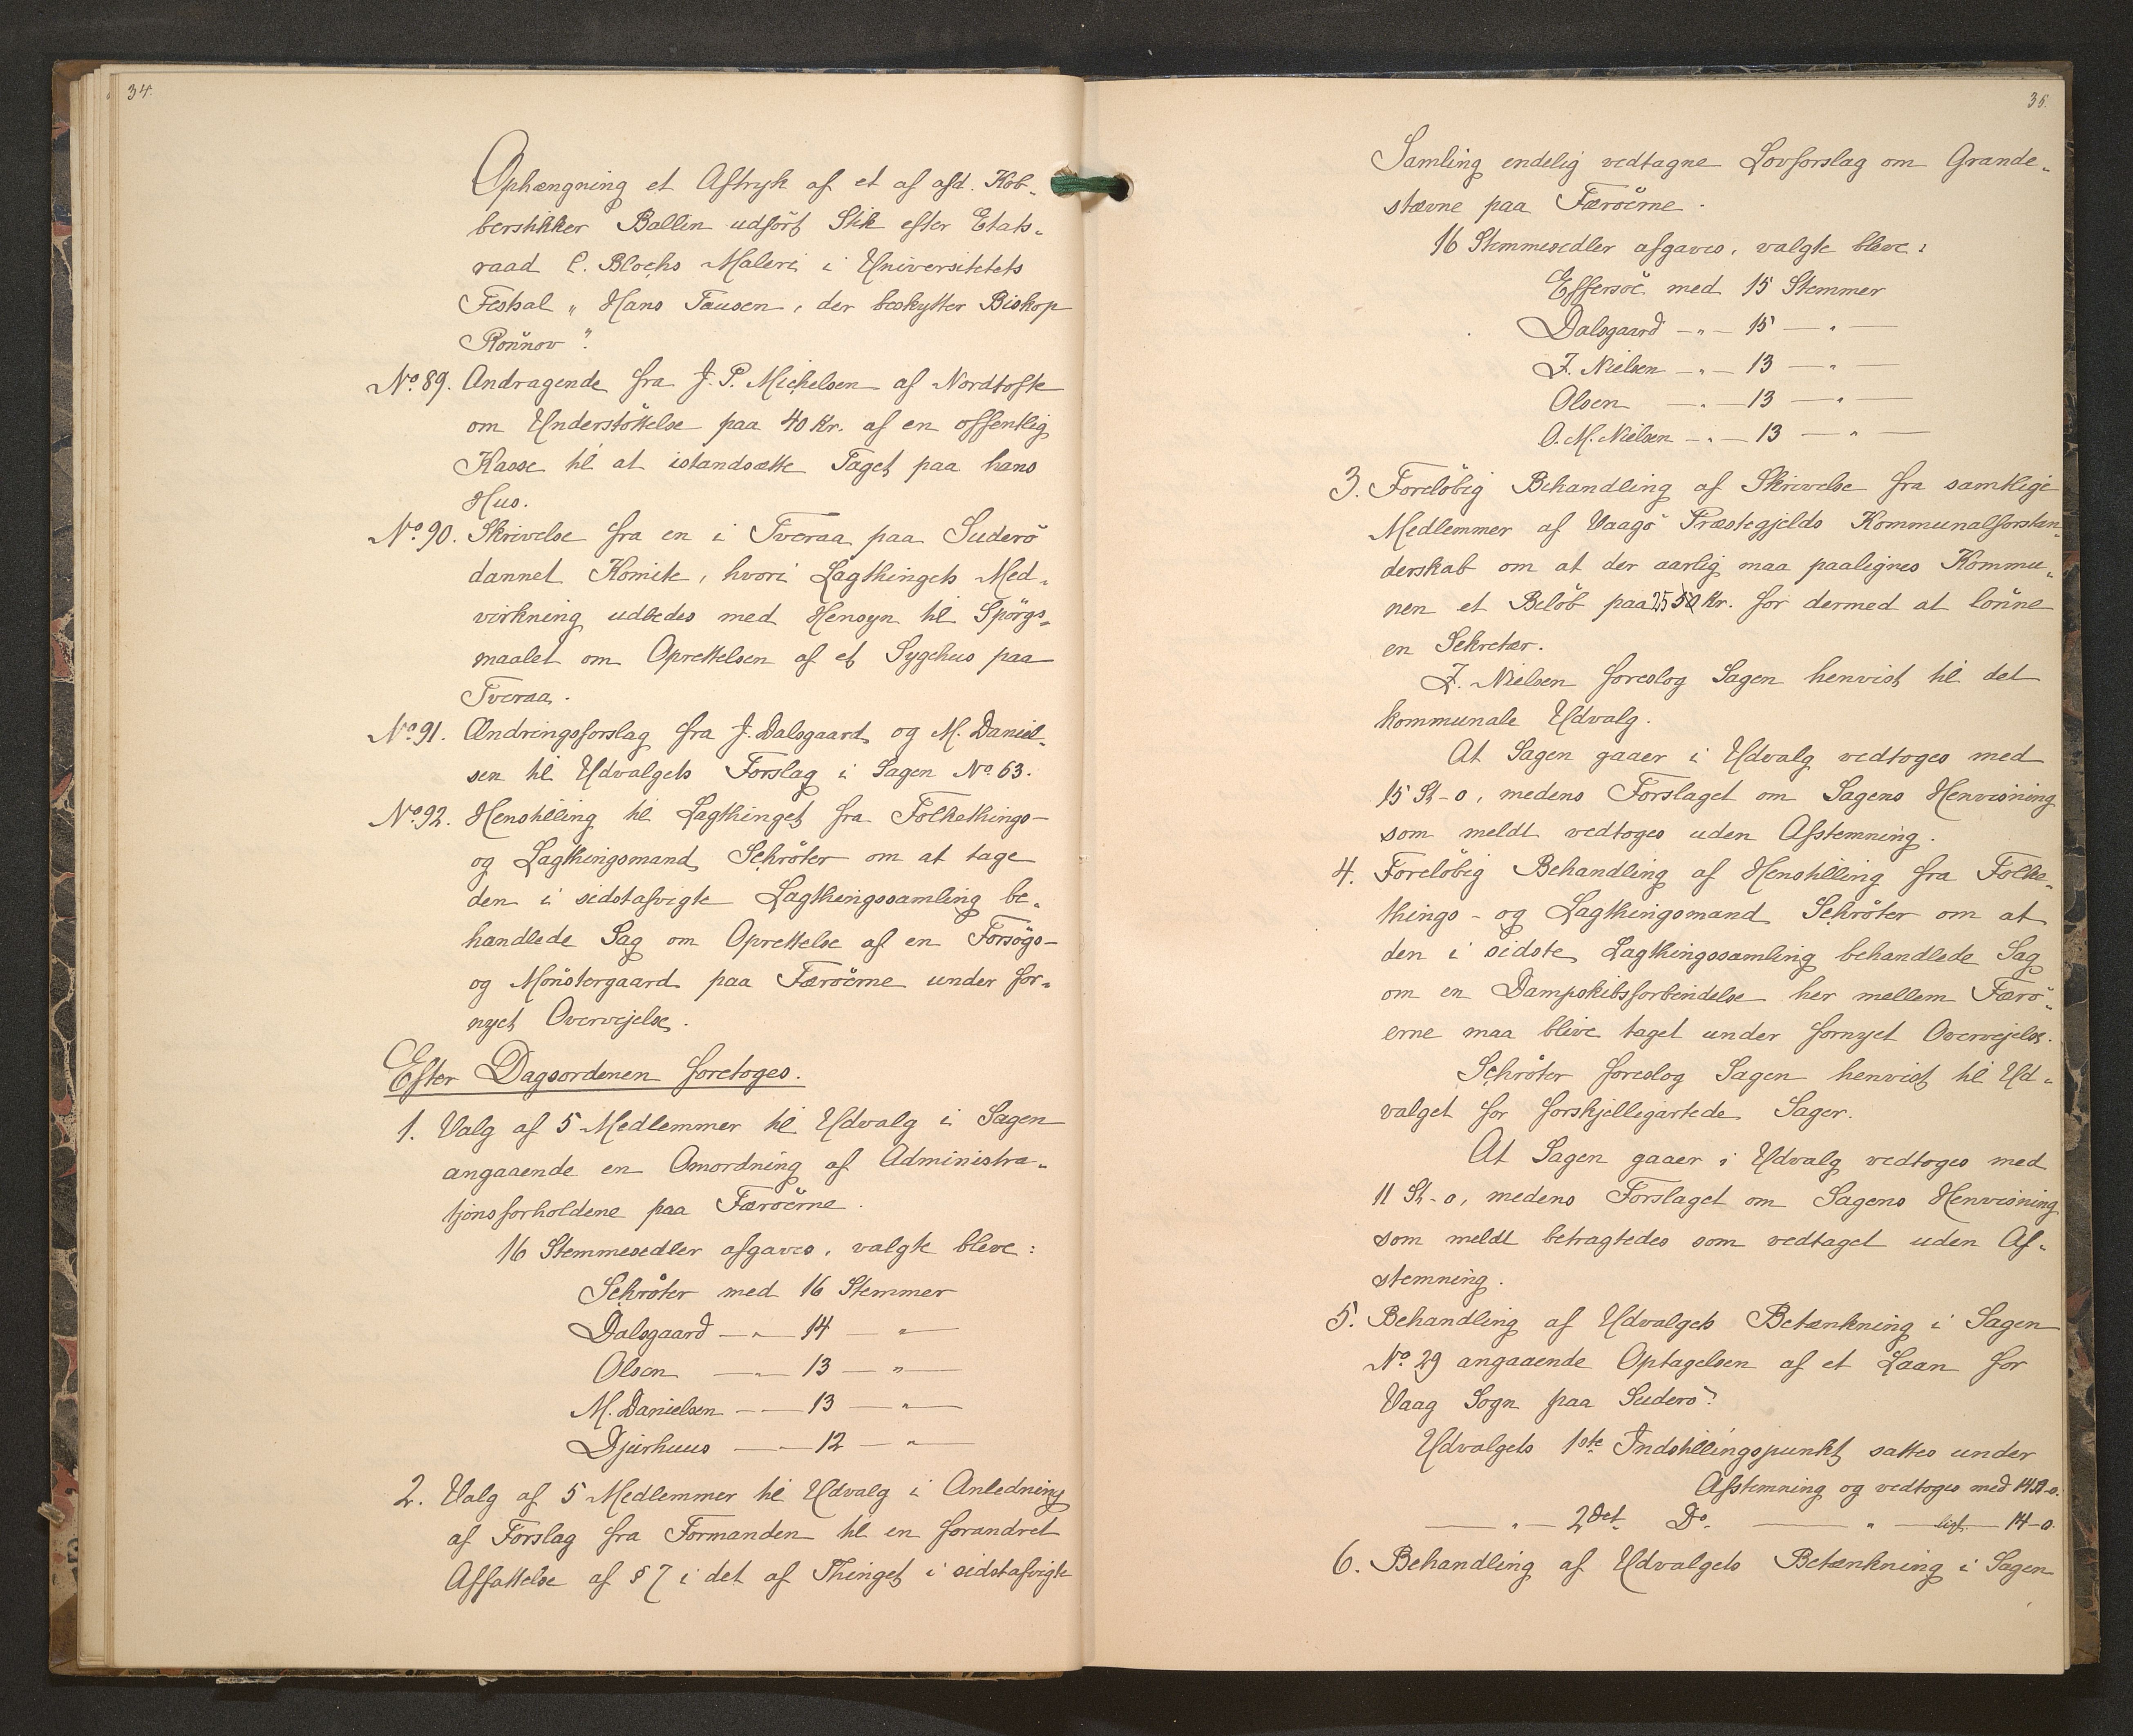 34.
Ophængning et Aftryk af et af afd. Kob-
berstikker Ballin udført Stik efter Etats-
raad C. Blochs Maleri i Universitetets
Festsal „Hans Tausen, der beskytter Biskop
Rönnov".
No. 89. Andragende fra J. P. Michelsen af Nordtofte
om Understöttelse paa 40 Kr. af en offentlig
Kasse til at istandsætte Taget paa hans
Hus.
No. 90. Skrivelse fra en i Tveraa paa Suderö
dannet Komite, hvori Lagthingets Med-
virkning udbedes med Hensyn til Spörgs-
maalet om Oprettelsen af et Sygehus paa
Tveraa.
No. 91. Ændringsforslag fra J. Dalsgaard og M. Daniel-
sen til Udvalgets Forslag i Sagen No. 63.
No. 92. Henstilling til Lagthinget fra Folkethings-
og Lagthingsmand Schröter om at tage
den i sidstafvigte Lagthingssamling be-
handlede Sag om Oprettelse af en Forsögs-
og Mönstergaard paa Færöerne under for-
nyet Overvejelse.
Efter Dagsordenen foretoges.
1. Valg af 5 Medlemmer til Udvalg i Sagen
angaaende en Omordning af Administra-
tjonsforholdene paa Færöerne.
16 Stemmesedler afgaves, valgte bleve:
Schröter med 16 Stemmer
Dalsgaard — „ — 14 — „ —
Olsen — „ — 13 — „ —
M. Danielsen — — 13 — „ —
Djurhuus — — 12 — „ —
2. Valg af 5 Medlemmer til Udvalg i Anledning
af Forslag fra Formanden til en forandret
Affattelse af § 7 i det af Thinget i sidstafvigte
35.
Samling endelig vedtagne Lovforslag om Grande-
stævne paa Færöerne.
16 Stemmesedler afgaves, valgte bleve:
Effersöe med 15 Stemmer
Dalsgaard — „ — 15 — „ —
J. Nielsen — „ — 13 — „ —
Olsen — „ — 13 — „ —
O. M. Nielsen — „ — 13 — „ —
3. Foreløbig Behandling af Skrivelse fra samtlige
Medlemmer af Vaagö Præstegjelds Kommunalforstan-
derskab om at der aarlig maa paalignes Kommu-
nen et Belöb paa 25 50 Kr. for dermed at lönne
en Sekretær.
J. Nielsen foreslog Sagen henvist til det
kommunale Udvalg.
At Sagen gaaer i Udvalg vedtoges med
15 St-0, medens Forslaget om Sagens Henvisning
som meldt vedtoges uden Afstemning.
4. Foreløbig Behandling af Henstilling fra Folke-
things- og Lagthingsmand Schröter om at
den i sidste Lagthingssamling behandlede Sag
om en Dampskibsforbindelse her mellem Færö-
erne maa blive taget under fornyet Overvejelse.
Schröter foreslog Sagen henvist til Ud-
valget for forskjelligartede Sager.
At Sagen gaaer i Udvalg vedtoges med
11 St-0, medens Forslaget om Sagens Henvisning
som meldt betragtedes som vedtaget uden Af-
stemning.
5. Behandling af Udvalgets Betænkning i Sagen
No. 29 angaaende Optagelsen af et Laan for
Vaag Sogn paa Suderö.
Udvalgets 1ste Indstillingspunkt sattes under
Afstemning og vedtoges med 14 St-0.
— „ — 2det Do. — „ — 14-0.
6. Behandling af Udvalgets Betænkning i Sagen